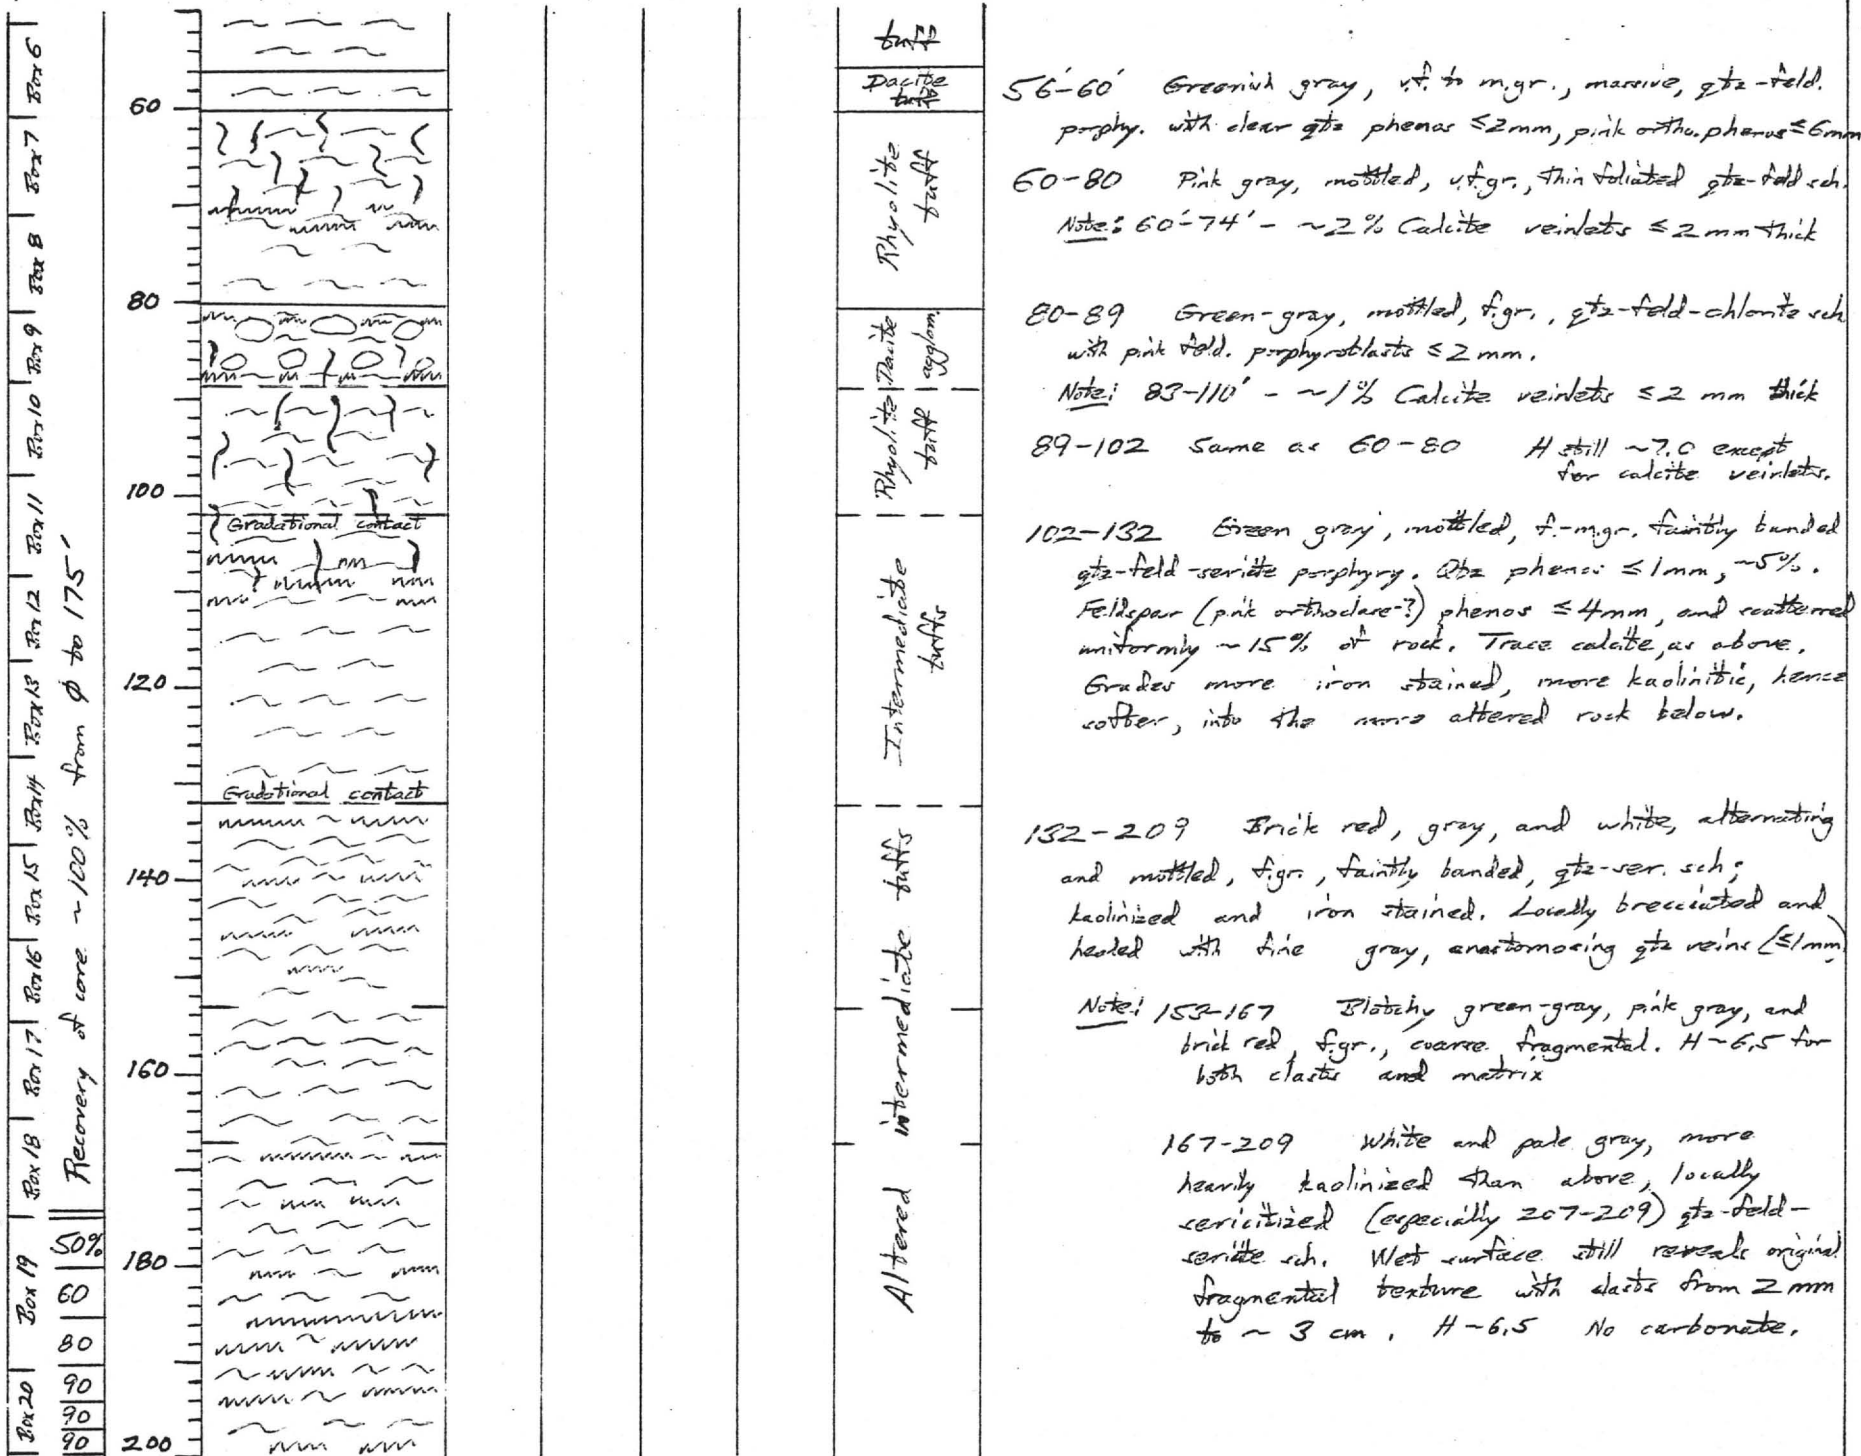 Box 6
Box 7
Box 8
Box 9
Box 10
Box 11
Box 12
Box 13
Box 14
Box 15
Box 16
Box 17
Box 18
Box 19
Box 20
Recovery of core ~100% from ø to 175'
50%
60
80
90
90
90
60
80
100
120
140
160
180
200
Gradational contact
Gradational contact
tuff
Dacite
tuff
Rhyolite
tuff
Dacite
agglom.
Rhyolite
tuff
Intermediate
tuffs
Altered intermediate tuffs
56'-60' Greenish gray, v.f. to m.gr., massive, qtz-feld.
porphy. with clear qtz phenos ≤2mm, pink ortho. phenos ≤6mm
60-80 Pink gray, mottled, v.f.gr., thin foliated qtz-feld sch.
Note: 60'-74' - ~2% Calcite veinlets ≤2mm thick
80-89 Green-gray, mottled, f.gr., qtz-feld-chlorite sch
with pink feld. porphyroblasts ≤2mm.
Note: 83-110' - ~1% Calcite veinlets ≤2 mm thick
89-102 Same as 60-80 H still ~7.0 except
for calcite veinlets.
102-132 Green gray, mottled, f.-m.gr. faintly banded
qtz-feld-sericite porphyry. Qtz phenos ≤1mm, ~5%.
Feldspar (pink orthoclase-?) phenos ≤4mm, and scattered
uniformly ~15% of rock. Trace calcite, as above.
Grades more iron stained, more kaolinitic, hence
softer, into the more altered rock below.
132-209 Brick red, gray, and white, alternating
and mottled, f.gr., faintly banded, qtz-ser. sch;
kaolinized and iron stained. Locally brecciated and
healed with fine gray, anastomosing qtz veins (≤1mm)
Note: 153-167 Blotchy green-gray, pink gray, and
brick red, f.gr., coarse fragmental. H~6.5 for
both clasts and matrix
167-209 White and pale gray, more
heavily kaolinized than above, locally
sericitized (especially 207-209) qtz-feld-
sericite sch. Wet surface still reveals original
fragmental texture with clasts from 2 mm
to ~ 3 cm. H~6.5 No carbonate.